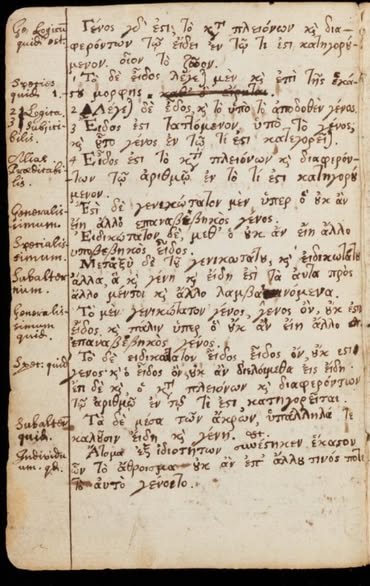 Ge. Logicū
quid est.
Γένος γδ' ἐστι τὸ κτ πλειόνων κỳ δια-
φερόντων τῷ εἴδει ἐν τῷ τί ἐστι κατηγορού-
μενον. οἷον τὸ ζῷον.
Species
quid. 1.
Τὸ δὲ εἶδος λέγε) μὲν κỳ ἐπὶ τῆς ἑκά-
στου μορφῆς.
2 Logica.
2 Λέγε) δὲ εἶδος κỳ τὸ ὑπὸ τὸ ἀποδοθὲν γένος.
3 Subjici-
bilis.
3 Εἶδος ἐστι ταττόμενον, ὑπὸ τὸ γένος,
κỳ οὗ γένος ἐν τῷ τί ἐστι κατηγορεῖ).
Alias
Prædicabi-
lis.
4 Εἶδος ἐστι τὸ κτ πλειόνων κỳ διαφερόν-
των τῷ ἀριθμῷ ἐν τῷ τί ἐστι κατηγορού-
μενον.
Generalis-
simum.
Ἔστι δὲ γενικώτατον μὲν, ὑπὲρ ὃ οὐκ ἂν
εἴη ἄλλο ἐπαναβεβηκὸς γένος.
Specialis-
simum.
Εἰδικώτατον δὲ, μεθ' ὃ οὐκ ἂν εἴη ἄλλο
ὑποβεβηκὸς εἶδος.
Subalter-
num.
Μεταξὺ δὲ τοῦ γενικωτάτου, κỳ εἰδικωτάτου
ἄλλα, ἃ κỳ γένη κỳ εἴδη ἐστὶ τὰ αὐτὰ πρὸς
ἄλλο μέντοι κỳ ἄλλο λαμβανόμενα.
Generalis-
simum
quid.
Τὸ μὲν γενικώτατον γένος, γένος ὂν, οὐκ ἔστι
εἶδος, κỳ πάλιν ὑπὲρ ὃ οὐκ ἂν εἴη ἄλλο
ἐπαναβεβηκὸς γένος.
Spec: quid
Τὸ δὲ εἰδικώτατον εἶδος εἶδος ὂν, οὐκ ἔστι
γένος κỳ ὃ εἶδος ὂν οὐκ ἂν διελοίμεθα εἰς εἴδη.
ἔτι δὲ κỳ, ὃ κτ πλειόνων κỳ διαφερόντων
τῷ ἀριθμῷ ἐν τῷ τί ἐστι κατηγορεῖται.
Subalter.
quid.
Τὰ δὲ μέσα τῶν ἄκρων, ὑπάλληλά τε
καλοῦσιν εἴδη κỳ γένη.
Individu-
um. qd.
Ἄτομα ἐξ ἰδιοτήτων συνέστηκεν ἕκαστον
ὧν τὸ ἄθροισμα οὐκ ἂν ἐπ' ἄλλου τινός ποτε
τὸ αὐτὸ γένοιτο.